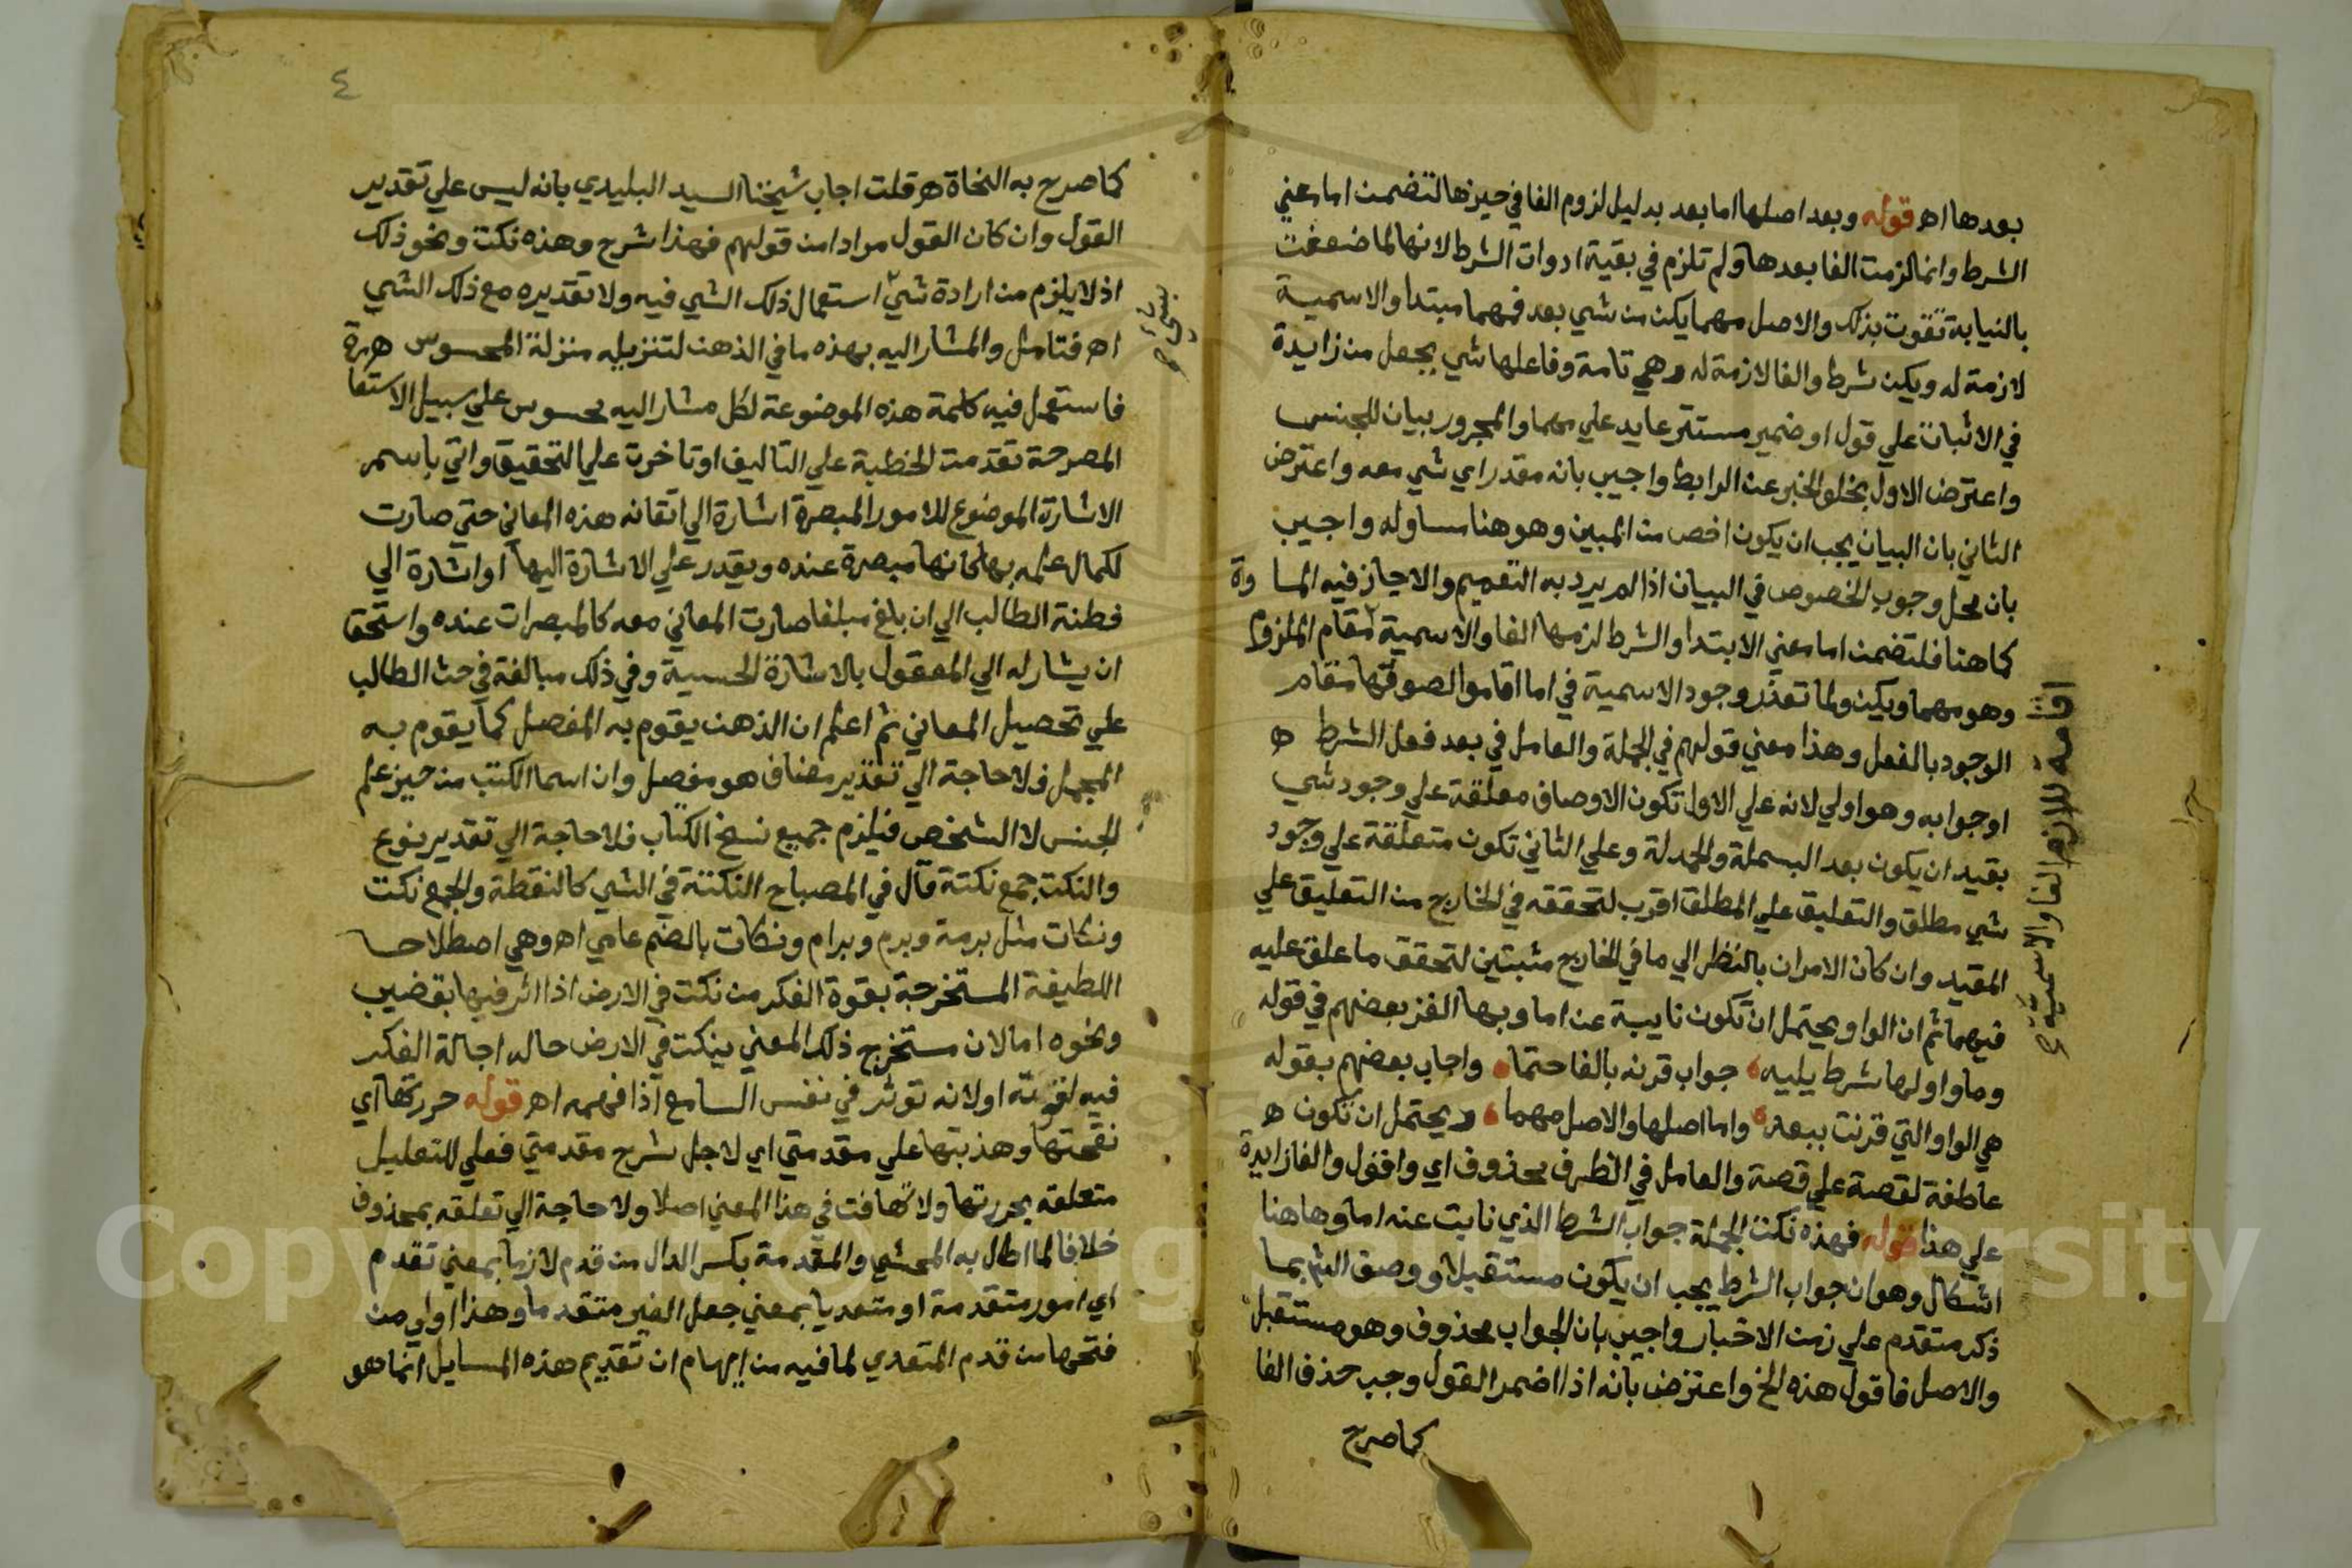 بعدها اه قوله وبعد اصلها اما بعد بدليل لزوم الفا في حيزها لتضمن اما معني
الشرط وانما لزمت الفا بعدها ولم تلزم في بقية ادوات الشرط لانها لما ضعفت
بالنيابة تقوت بذلك والاصل مهما يكن من شي بعد فمهما مبتدا والاسمية
لازمة له ويكن شرط والفا لازمة له وهي تامة وفاعلها شي بجعل من زايدة
في الاثبات علي قول او ضمير مستتر عايد علي مهما والمجرور بيان للجنس
واعترض الاول بخلو الخبر عن الرابط واجيب بانه مقدر اي شي معه واعترض
الثاني بان البيان يجب ان يكون اخص من المبين وهو هنا مساو له واجيب
بان محل وجوب الخصوص في البيان اذا لم يرد به التعميم والا جاز فيه المساواة
كما هنا فلتضمن اما معني الابتدا والشرط لزمها الفا والاسمية مقام الملزوم
وهو مهما ويكن ولما تعذر وجود الاسمية في اما اقاموا لصوقها مقام
الوجود بالفعل وهذا معني قولهم في الجملة والعامل في بعد فعل الشرط ه
او جوابه وهو اولي لانه علي الاول تكون الاوصاف معلقة علي وجود شي
بقيد ان يكون بعد البسملة والحمدلة وعلي الثاني تكون متعلقة علي وجود
شي مطلق والتعليق علي المطلق اقرب لتحققه في الخارج من التعليق علي
المقيد وان كان الامران بالنظر الي ما في الخارج مثبتين لتحقق ما علق عليه
فيهما ثم ان الواو يحتمل ان تكون نايبة عن اما وبها الغز بعضهم في قوله
وما واو لها شرط يليه جواب قرنه بالفا حتما واجاب بعضهم بقوله
هي الواو التي قرنت ببعد واما اصلها والاصل مهما ويحتمل ان تكون ه
عاطفة لقصة علي قصة والعامل في الظرف محذوف اي واقول والفا زايدة
علي هذا قوله فهذه نكت الجملة جواب الشرط الذي نابت عنه اما وهاهنا
اشكال وهو ان جواب الشرط يجب ان يكون مستقبلا ووصف الشي بما
ذكر متقدم علي زمن الاخبار واجيب بان الجواب محذوف وهو مستقبل
والاصل فاقول هذه الخ واعترض بانه اذا اضمر القول وجب حذف الفا
كما صرح
اقامة للازم الفا والاسمية
٤
كما صرح به النحاة ه قلت اجاب شيخنا السيد البليدي بانه ليس علي تقدير
القول وان كان القول مرادا من قولهم فهذا شرح وهذه نكت ونحو ذلك
اذ لا يلزم من ارادة شي استعمال ذلك الشي فيه ولا تقديره مع ذلك الشي
اه فتامل والمشار اليه بهذه ما في الذهن لتنزيله منزلة المحسوس
فاستعمل فيه كلمة هذه الموضوعة لكل مشار اليه محسوس علي سبيل الاستعا
المصرحة تقدمت الخطبة علي التاليف او تاخرت علي التحقيق واتي باسم
الاشارة الموضوع للامور المبصرة اشارة الي اتقانه هذه المعاني حتي صارت
لكمال علمه بها كانها مبصرة عنده ويقدر علي الاشارة اليها او اشارة الي
فطنة الطالب الي ان بلغ مبلغا صارت المعاني معه كالمبصرات عنده واستحق
ان يشار له الي المعقول بالاشارة الحسية وفي ذلك مبالغة في حث الطالب
علي تحصيل المعاني ثم اعلم ان الذهن يقوم به المفصل كما يقوم به
المجمل فلا حاجة الي تقدير مضاف هو مفصل وان اسما الكتب من حيز علم
الجنس لا الشخص فيلزم جميع نسخ الكتاب فلا حاجة الي تقدير نوع
والنكت جمع نكتة قال في المصباح النكتة في الشي كالنقطة والجمع نكت
ونكات مثل برمة وبرم وبرام ونكات بالضم عامي اه وهي اصطلاحا
اللطيفة المستخرجة بقوة الفكر من نكت في الارض اذا اثر فيها بقضيب
ونحوه اما لان مستخرج ذلك المعني ينكت في الارض حال اجالة الفكر
فيه اولانه توثر في نفس السامع اذا فهمه اه قوله حررتها اي
نقحتها وهذبتها علي مقدمتي اي لاجل شرح مقدمتي فعلي للتعليل
متعلقة بحررتها ولا تهافت في هذا المعني اصلا ولا حاجة الي تعلقه بمحذوف
خلافا لما اطال به المحشي والمقدمة بكسر الدال من قدم لازما بمعني تقدم
اي امور متقدمة او متعديا بمعني جعل الغير متقدما وهذا اولي من
فتحها من قدم المتعدي لما فيه من ايهام ان تقديم هذه المسايل انما هو